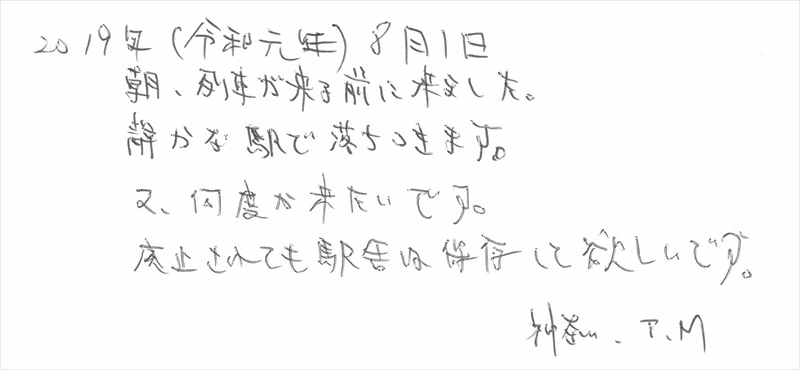 2019年(令和元年)8月1日
朝、列車が来る前に来ました。
静かな駅で落ちつきます。
又、何度か来たいです。
廃止されても駅舎は保存して欲しいです。
T.M